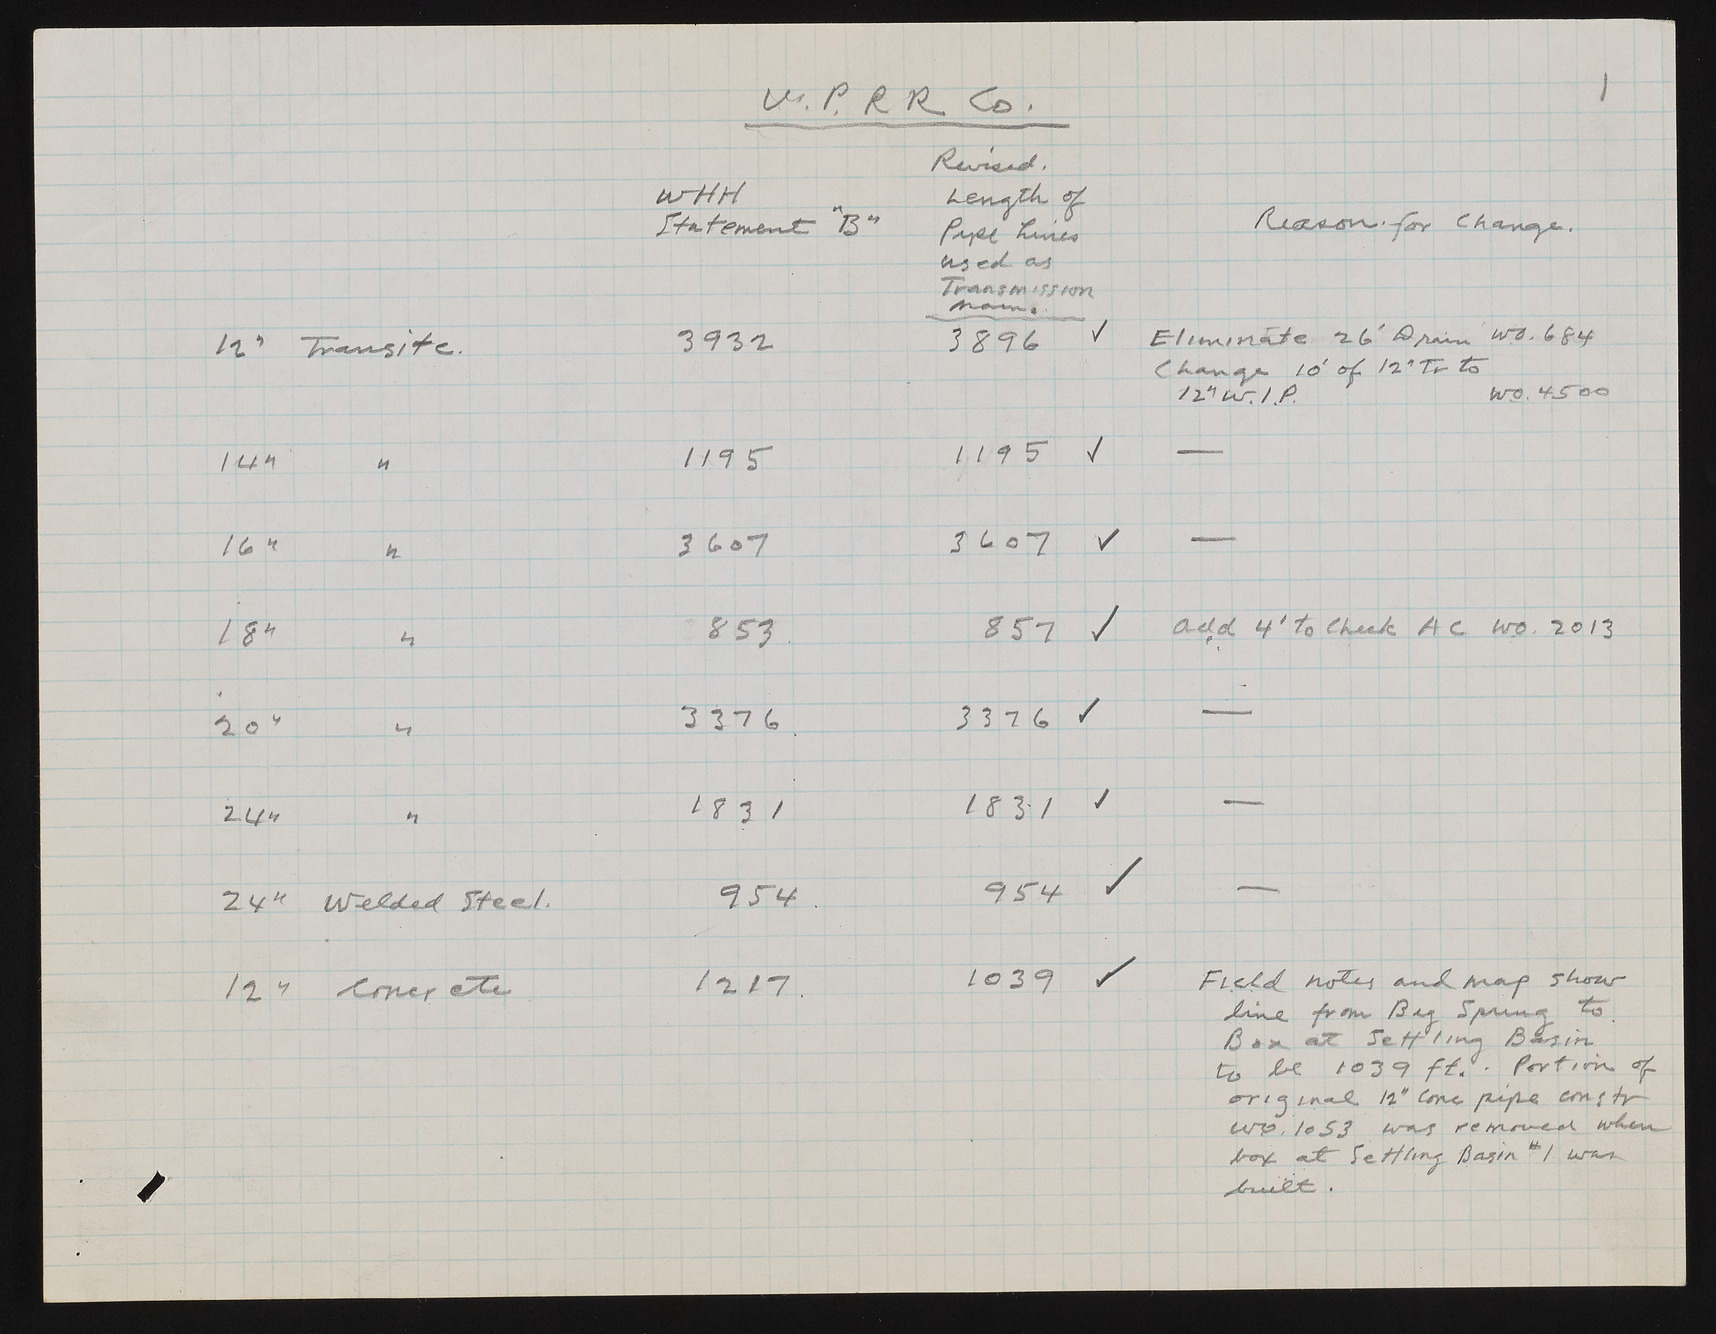 1
U. P. R R Co.
WHH
Statement "B"
Revised.
Length of
Pipe Lines
used as
Transmission
Mains.
Reason for Change.
12" Transite. 3932 3896 ✓ Eliminate 26' Drain WO. 684
Change 10' of 12" Tr to
12" W.I.P. WO. 4500
14" " 1195 1195 ✓ —
16" " 3607 3607 ✓ —
18" " 853 857 ✓ add 4' to Check A C WO. 2013
20" " 3376 3376 ✓ —
24" " 1831 1831 ✓ —
24" Welded Steel. 954 954 ✓ —
12" Concrete 1217 1039 ✓ Field notes and map show
line from Big Spring to
Box at Settling Basin
to be 1039 ft. Portion of
original 12" Conc pipe constr
WO. 1053 was removed when
box at Settling Basin #1 was
built.